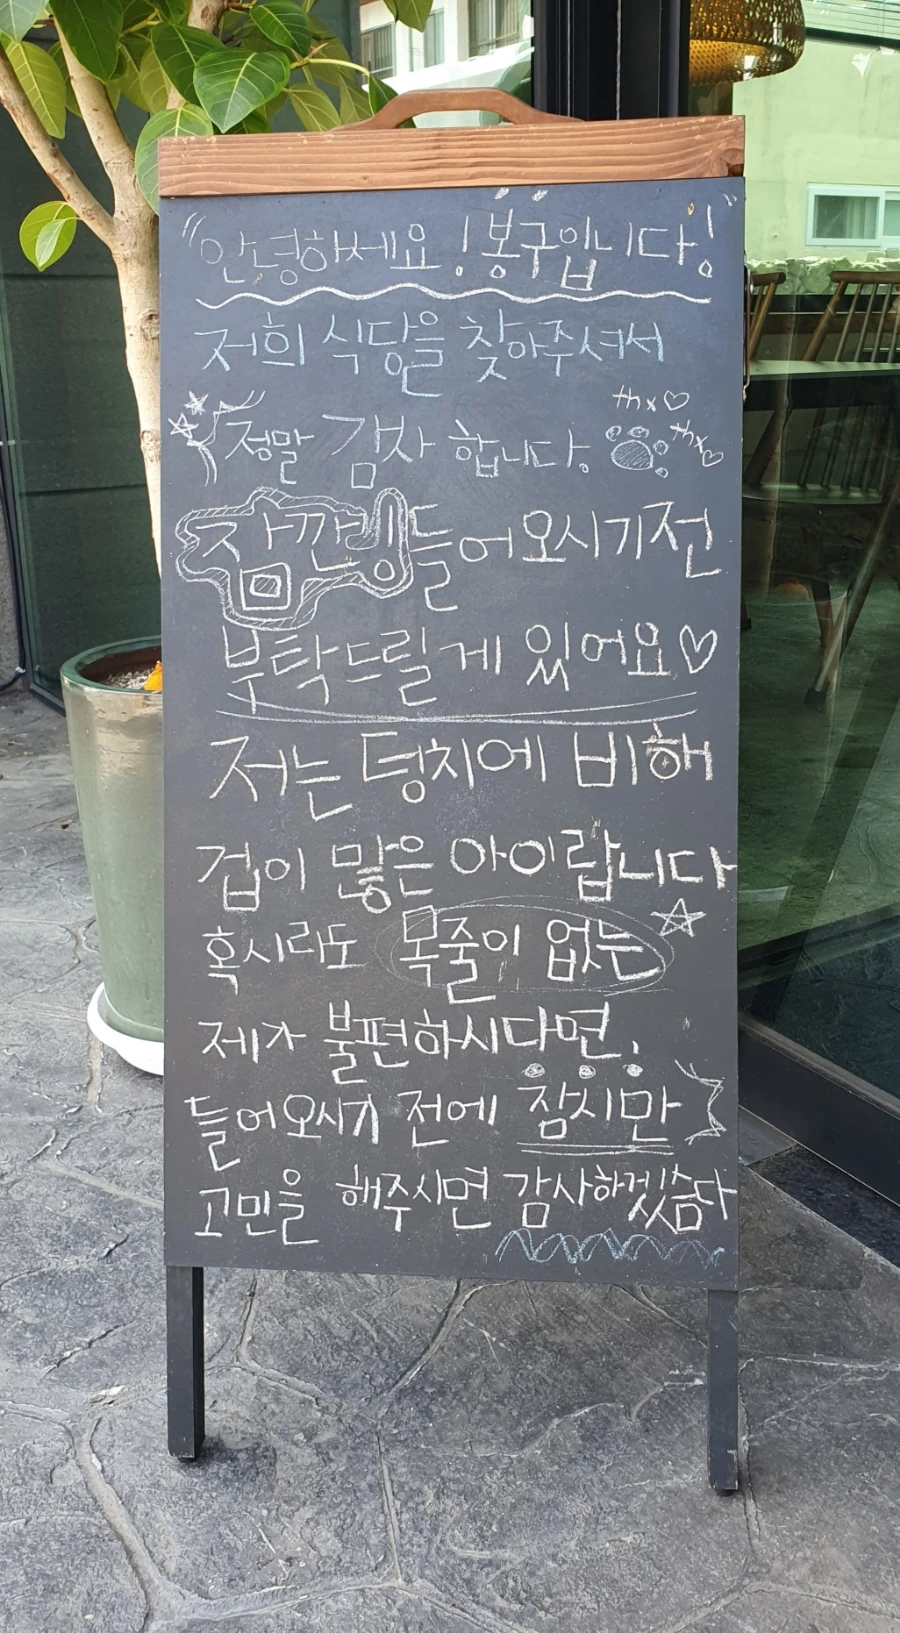 "안녕하세요! 봉구입니다!"
저희 식당을 찾아주셔서
thx♡
정말 감사 합니다. thx♡
잠깐! 들어오시기전
부탁드릴게 있어요♡
저는 덩치에 비해
겁이 많은 아이랍니다
혹시라도 목줄이 없는
제가 불편하시다면,
들어오시기 전에 잠시만
고민을 해주시면 감사하겠습니다